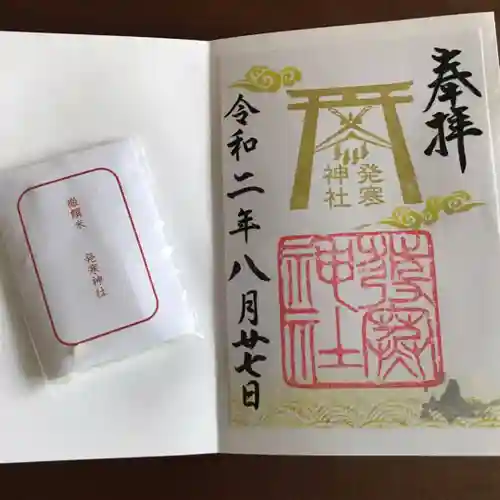 奉拝
発寒
神社
發寒
神社
令和二年八月廿七日
撤饌米
発寒神社